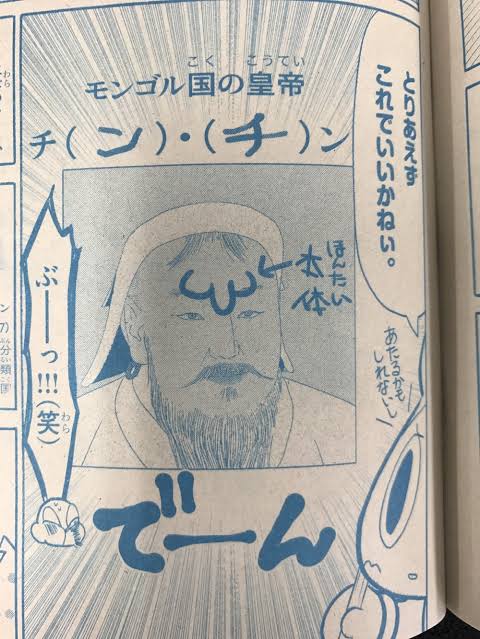 とりあえず
これでいいかねい。
モンゴル国の皇帝
こく こうてい
チ(ン)・(チ)ン
ほんたい
本体
あたるかも
しれないし
ぶーっ!!!(笑)
わら
でーん